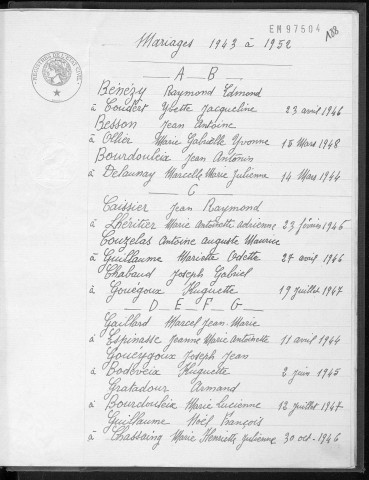 EM97504
A88
Mariages 1943 à 1952
A B
Bénézy Raymond Edmond
à Coudert Yvette Jacqueline 23 avril 1946
Besson Jean Antoine
à Ollier Marie Gabrielle Yvonne 15 Mars 1948
Bourdouleix Jean Antonin
à Delaunay Marcelle Marie Julienne 14 Mars 1944
C
Caissier Jean Raymond
à Lhéritier Marie Antoinette Adrienne 23 février 1945
Couzelas Antoine Auguste Maurice
à Guillaume Mariette Odette 27 avril 1946
Chabaud Joseph Gabriel
à Gouégoux Huguette 19 juillet 1947
D E F G
Gaillard Marcel Jean-Marie
à Espinasse Jeanne Marie Antoinette 11 avril 1944
Gouézgoux Joseph Jean
à Bodeveix Huguette 2 juin 1945
Gratadour Armand
à Bourdouleix Marie Lucienne 12 juillet 1947
Guillaume Noël François
à Chassaing Marie Henriette Julienne 30 oct. 1946